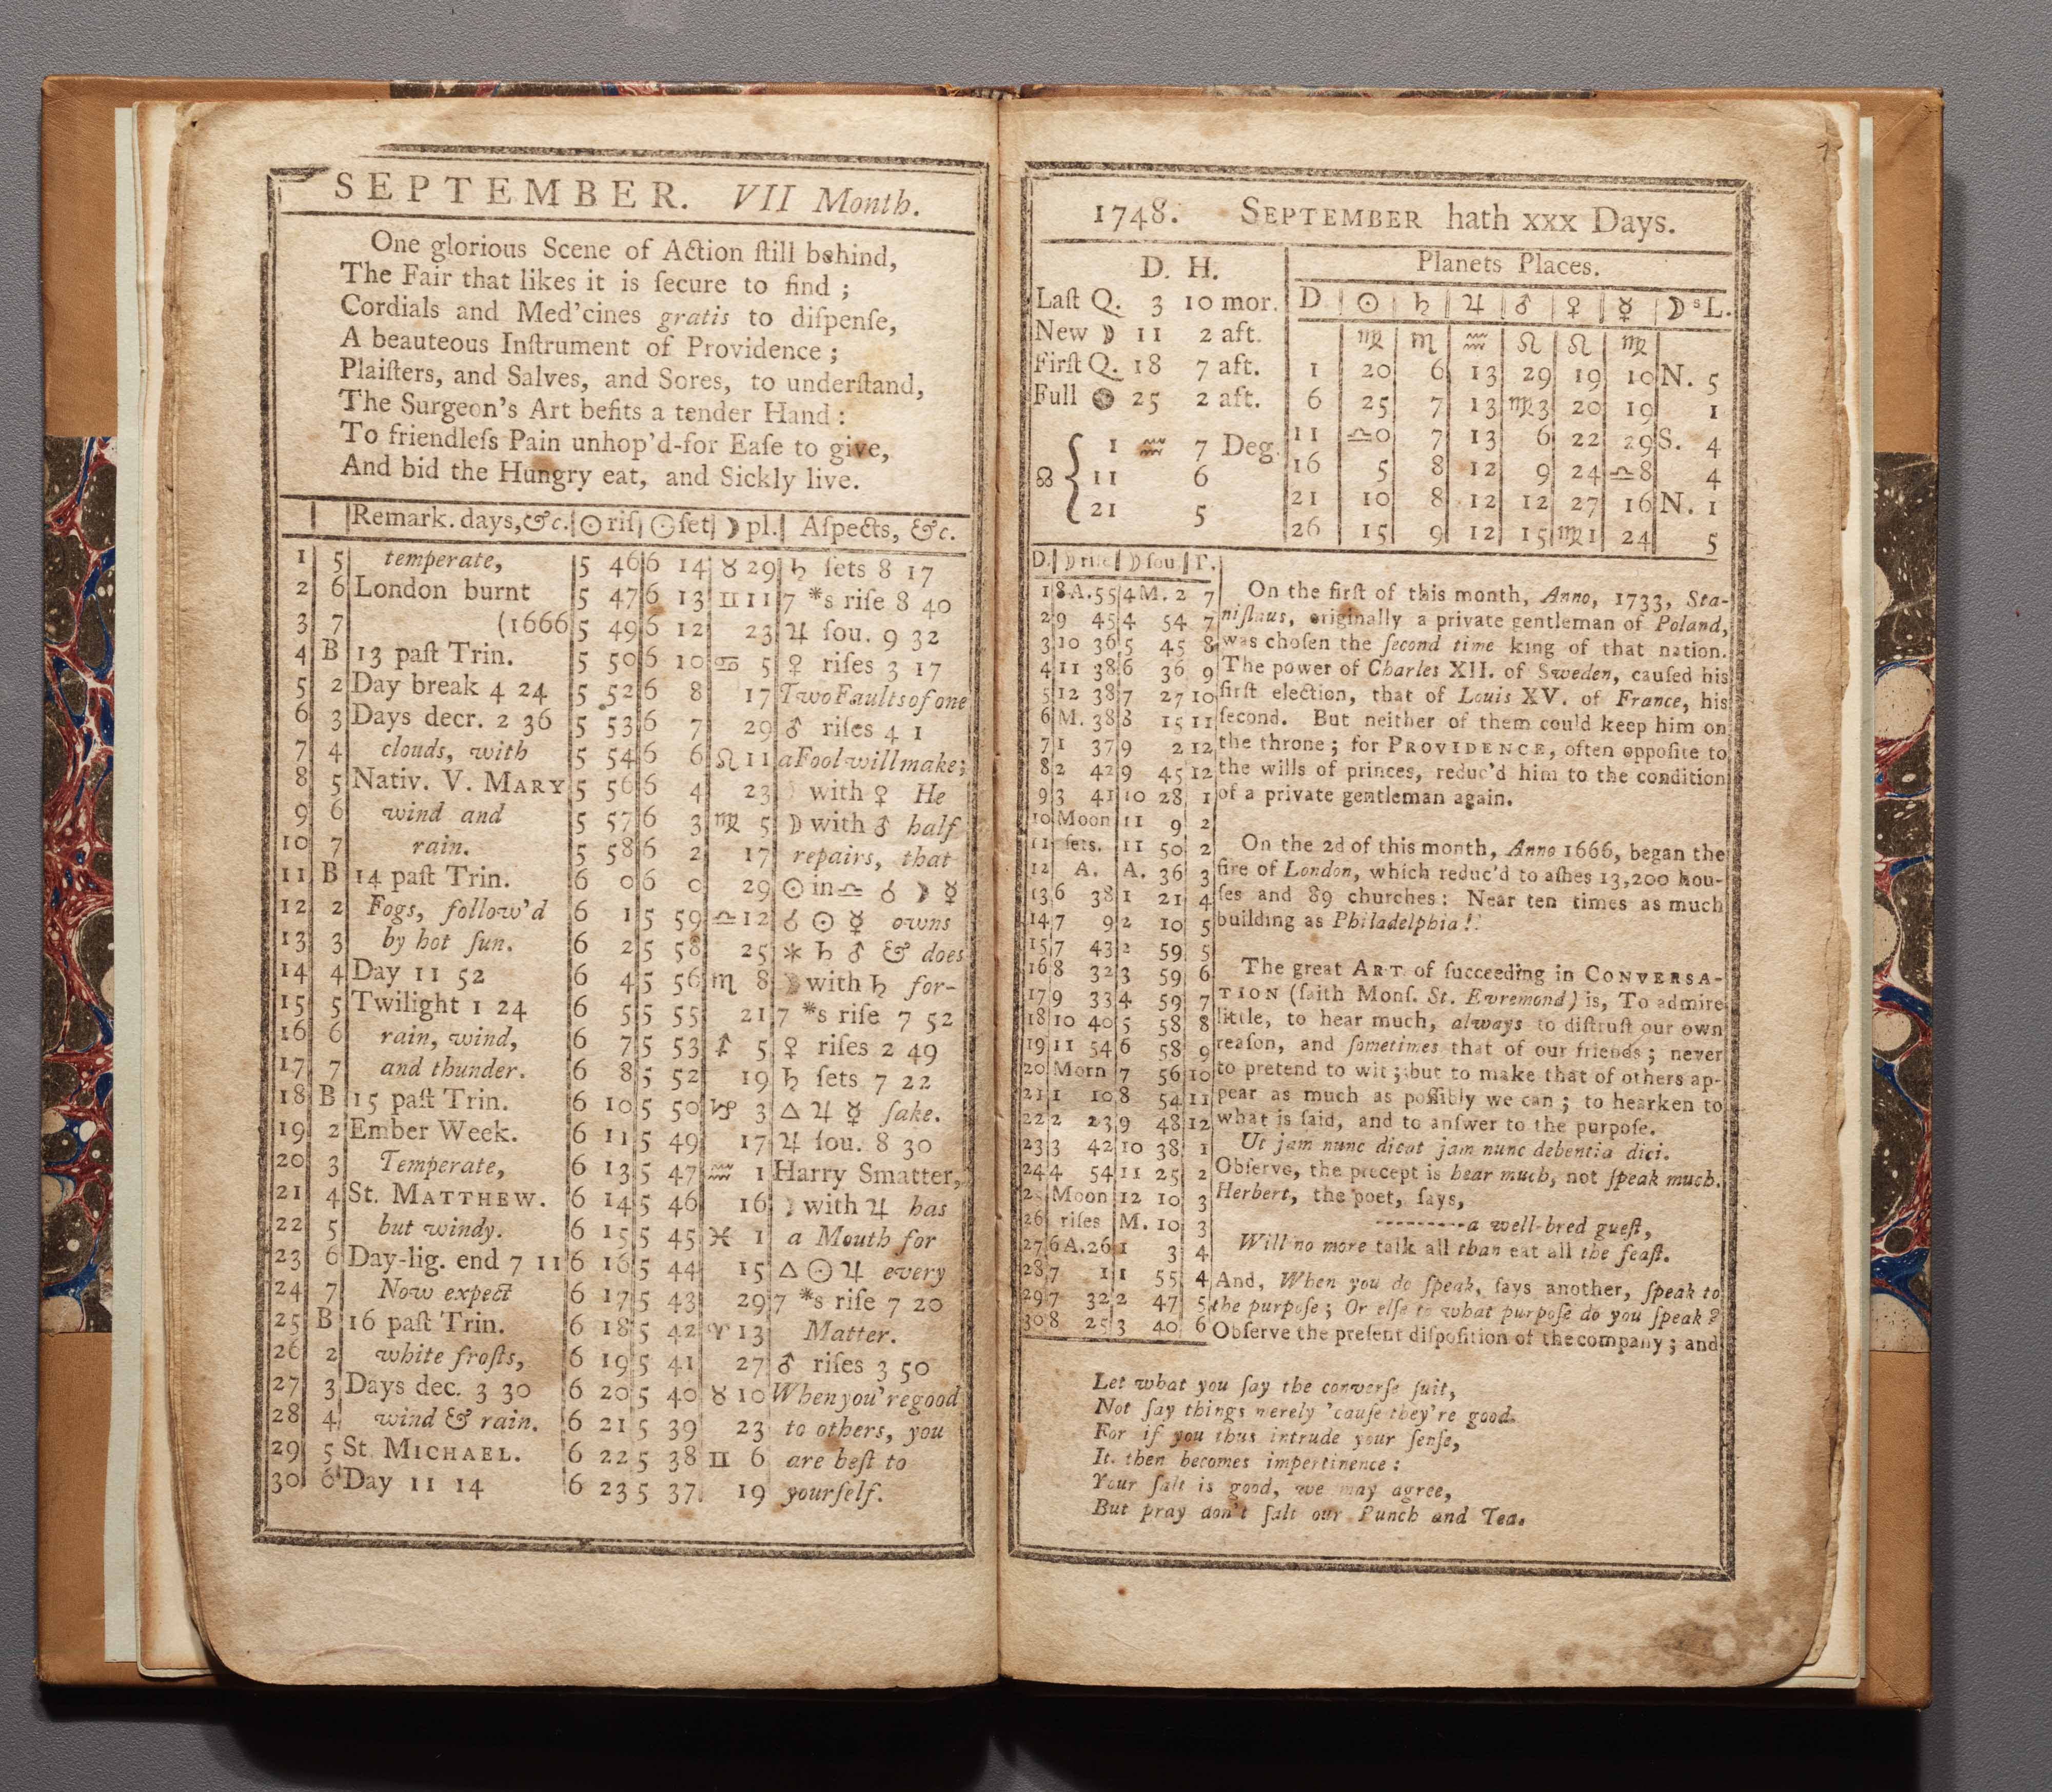 SEPTEMBER. VII Month.
One glorious Scene of Action ſtill behind,
The Fair that likes it is ſecure to find ;
Cordials and Med'cines gratis to diſpenſe,
A beauteous Inſtrument of Providence ;
Plaiſters, and Salves, and Sores, to underſtand,
The Surgeon's Art befits a tender Hand :
To friendleſs Pain unhop'd-for Eaſe to give,
And bid the Hungry eat, and Sickly live.
Remark. days, &c. ☉ riſ ☉ ſet ☽ pl. Aſpects, &c.
1 5 temperate, 5 46 6 14 ♉ 29 ♄ ſets 8 17
2 6 London burnt 5 47 6 13 ♊ 11 7 *s riſe 8 40
3 7 (1666 5 49 6 12 23 ♃ ſou. 9 32
4 B 13 paſt Trin. 5 50 6 10 ♋ 5 ♀ riſes 3 17
5 2 Day break 4 24 5 52 6 8 17 Two Faults of one
6 3 Days decr. 2 36 5 53 6 7 29 ♂ riſes 4 1
7 4 clouds, with 5 54 6 6 ♌ 11 a Fool will make;
8 5 Nativ. V. MARY 5 56 6 4 23 ☽ with ♀ He
9 6 wind and 5 57 6 3 ♍ 5 ☽ with ♂ half
10 7 rain. 5 58 6 2 17 repairs, that
11 B 14 paſt Trin. 6 0 6 0 29 ☉ in ♎ ☌ ☽ ☿
12 2 Fogs, follow'd 6 1 5 59 ♎ 12 ☌ ☉ ☿ owns
13 3 by hot ſun. 6 2 5 58 25 ✱ ♄ ♂ & does
14 4 Day 11 52 6 4 5 56 ♏ 8 ☽ with ♄ for-
15 5 Twilight 1 24 6 5 5 55 21 7 *s riſe 7 52
16 6 rain, wind, 6 7 5 53 ♐ 5 ♀ riſes 2 49
17 7 and thunder. 6 8 5 52 19 ♄ ſets 7 22
18 B 15 paſt Trin. 6 10 5 50 ♑ 3 △ ♃ ☿ ſake.
19 2 Ember Week. 6 11 5 49 17 ♃ ſou. 8 30
20 3 Temperate, 6 13 5 47 ♒ 1 Harry Smatter,
21 4 St. MATTHEW. 6 14 5 46 16 ☽ with ♃ has
22 5 but windy. 6 15 5 45 ♓ 1 a Mouth for
23 6 Day-lig. end 7 11 6 16 5 44 15 △ ☉ ♃ every
24 7 Now expect 6 17 5 43 29 7 *s riſe 7 20
25 B 16 paſt Trin. 6 18 5 42 ♈ 13 Matter.
26 2 white froſts, 6 19 5 41 27 ♂ riſes 3 50
27 3 Days dec. 3 30 6 20 5 40 ♉ 10 When you're good
28 4 wind & rain. 6 21 5 39 23 to others, you
29 5 St. MICHAEL. 6 22 5 38 ♊ 6 are beſt to
30 6 Day 11 14 6 23 5 37 19 yourſelf.
1748. SEPTEMBER hath xxx Days.
D. H.
Laſt Q. 3 10 mor.
New ☽ 11 2 aft.
Firſt Q. 18 7 aft.
Full 25 2 aft.
☊ { 1 ♒ 7 Deg.
11 6
21 5
Planets Places.
D. ☉ ♄ ♃ ♂ ♀ ☿ ☽sL.
♍ ♏ ♒ ♌ ♌ ♍
1 20 6 13 29 19 10 N. 5
6 25 7 13 ♍3 20 19 1
11 ♎0 7 13 6 22 29 S. 4
16 5 8 12 9 24 ♎8 4
21 10 8 12 12 27 16 N. 1
26 15 9 12 15 ♍1 24 5
D. ☽ riſe ☽ ſou. T.
1 8A.55 4M. 2 7
2 9 45 4 54 7
3 10 36 5 45 8
4 11 38 6 36 9
5 12 38 7 27 10
6 M. 38 8 15 11
7 1 37 9 2 12
8 2 42 9 45 12
9 3 41 10 28 1
10 Moon 11 9 2
11 ſets. 11 50 2
12 A. A. 36 3
13 6 38 1 21 4
14 7 9 2 10 5
15 7 43 2 59 5
16 8 32 3 59 6
17 9 33 4 59 7
18 10 40 5 58 8
19 11 54 6 58 9
20 Morn 7 56 10
21 1 10 8 54 11
22 2 23 9 48 12
23 3 42 10 38 1
24 4 54 11 25 2
25 Moon 12 10 3
26 riſes M. 10 3
27 6A.26 1 3 4
28 7 1 1 55 4
29 7 32 2 47 5
30 8 25 3 40 6
On the firſt of this month, Anno, 1733, Sta-
niſlaus, originally a private gentleman of Poland,
was choſen the ſecond time king of that nation.
The power of Charles XII. of Sweden, cauſed his
firſt election, that of Louis XV. of France, his
ſecond. But neither of them could keep him on
the throne ; for PROVIDENCE, often oppoſite to
the wills of princes, reduc'd him to the condition
of a private gentleman again.
On the 2d of this month, Anno 1666, began the
fire of London, which reduc'd to aſhes 13,200 hou-
ſes and 89 churches : Near ten times as much
building as Philadelphia !
The great ART of ſucceeding in CONVERSA-
TION (ſaith Monſ. St. Evremond) is, To admire
little, to hear much, always to diſtruſt our own
reaſon, and ſometimes that of our friends ; never
to pretend to wit ; but to make that of others ap-
pear as much as poſſibly we can ; to hearken to
what is ſaid, and to anſwer to the purpoſe.
Ut jam nunc dicat jam nunc debentia dici.
Obſerve, the precept is hear much, not ſpeak much.
Herbert, the poet, ſays,
---------a well-bred gueſt,
Will no more talk all than eat all the feaſt.
And, When you do ſpeak, ſays another, ſpeak to
the purpoſe ; Or elſe to what purpoſe do you ſpeak ?
Obſerve the preſent diſpoſition of the company ; and
Let what you ſay the converſe ſuit,
Not ſay things merely 'cauſe they're good.
For if you thus intrude your ſenſe,
It then becomes impertinence :
Your ſalt is good, we may agree,
But pray don't ſalt our Punch and Tea.